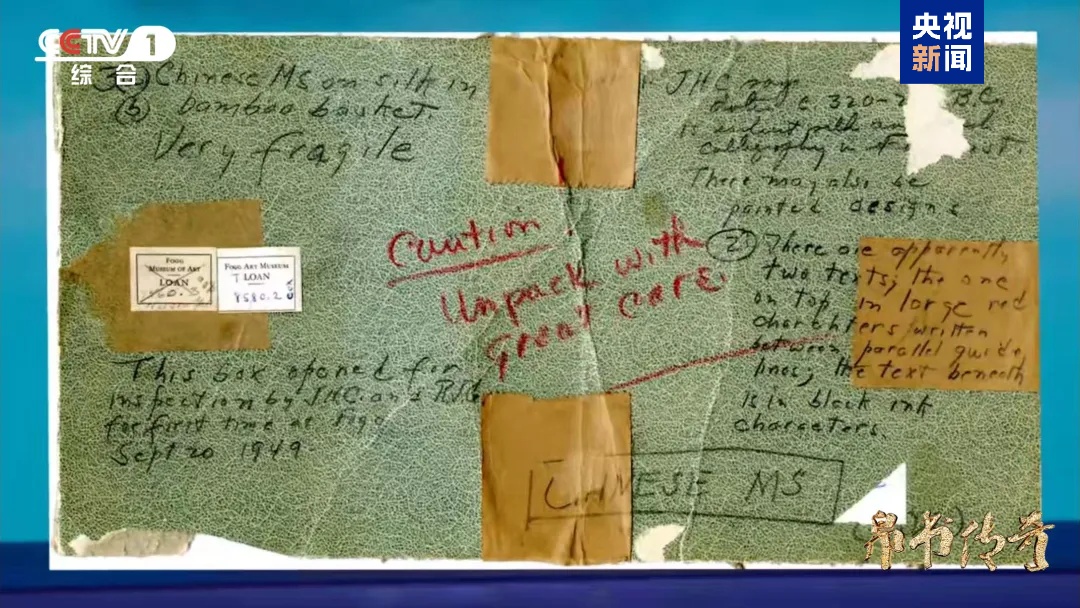 CCTV 1
综合
央视
新闻
(a) Chinese MS on silk in JHC
(b) Bamboo basket.
Very fragile
B.C.
calligraphy in
There may also be
painted designs
Caution.
Unpack with
great care.
(2) There are apparently
two texts; the one
on top in large red
charahters written
between parallel guide
lines; the text beneath
is in black ink
characters.
FOGG
MUSEUM OF ART
LOAN
FOGG ART MUSEUM
T LOAN
8580.2
This box opened for
inspection by JHC and
for first time at Fogg
Sept 20 1949
CHINESE MS
帛书传奇